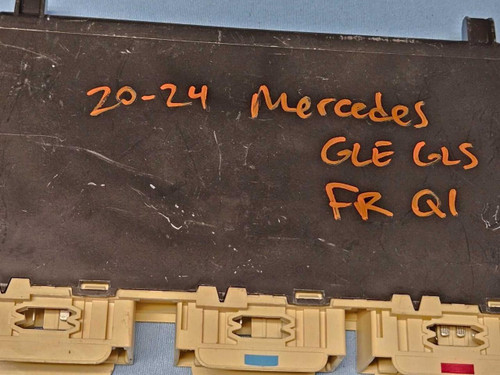 20-24 Mercedes
GLE GLS
FR Q1